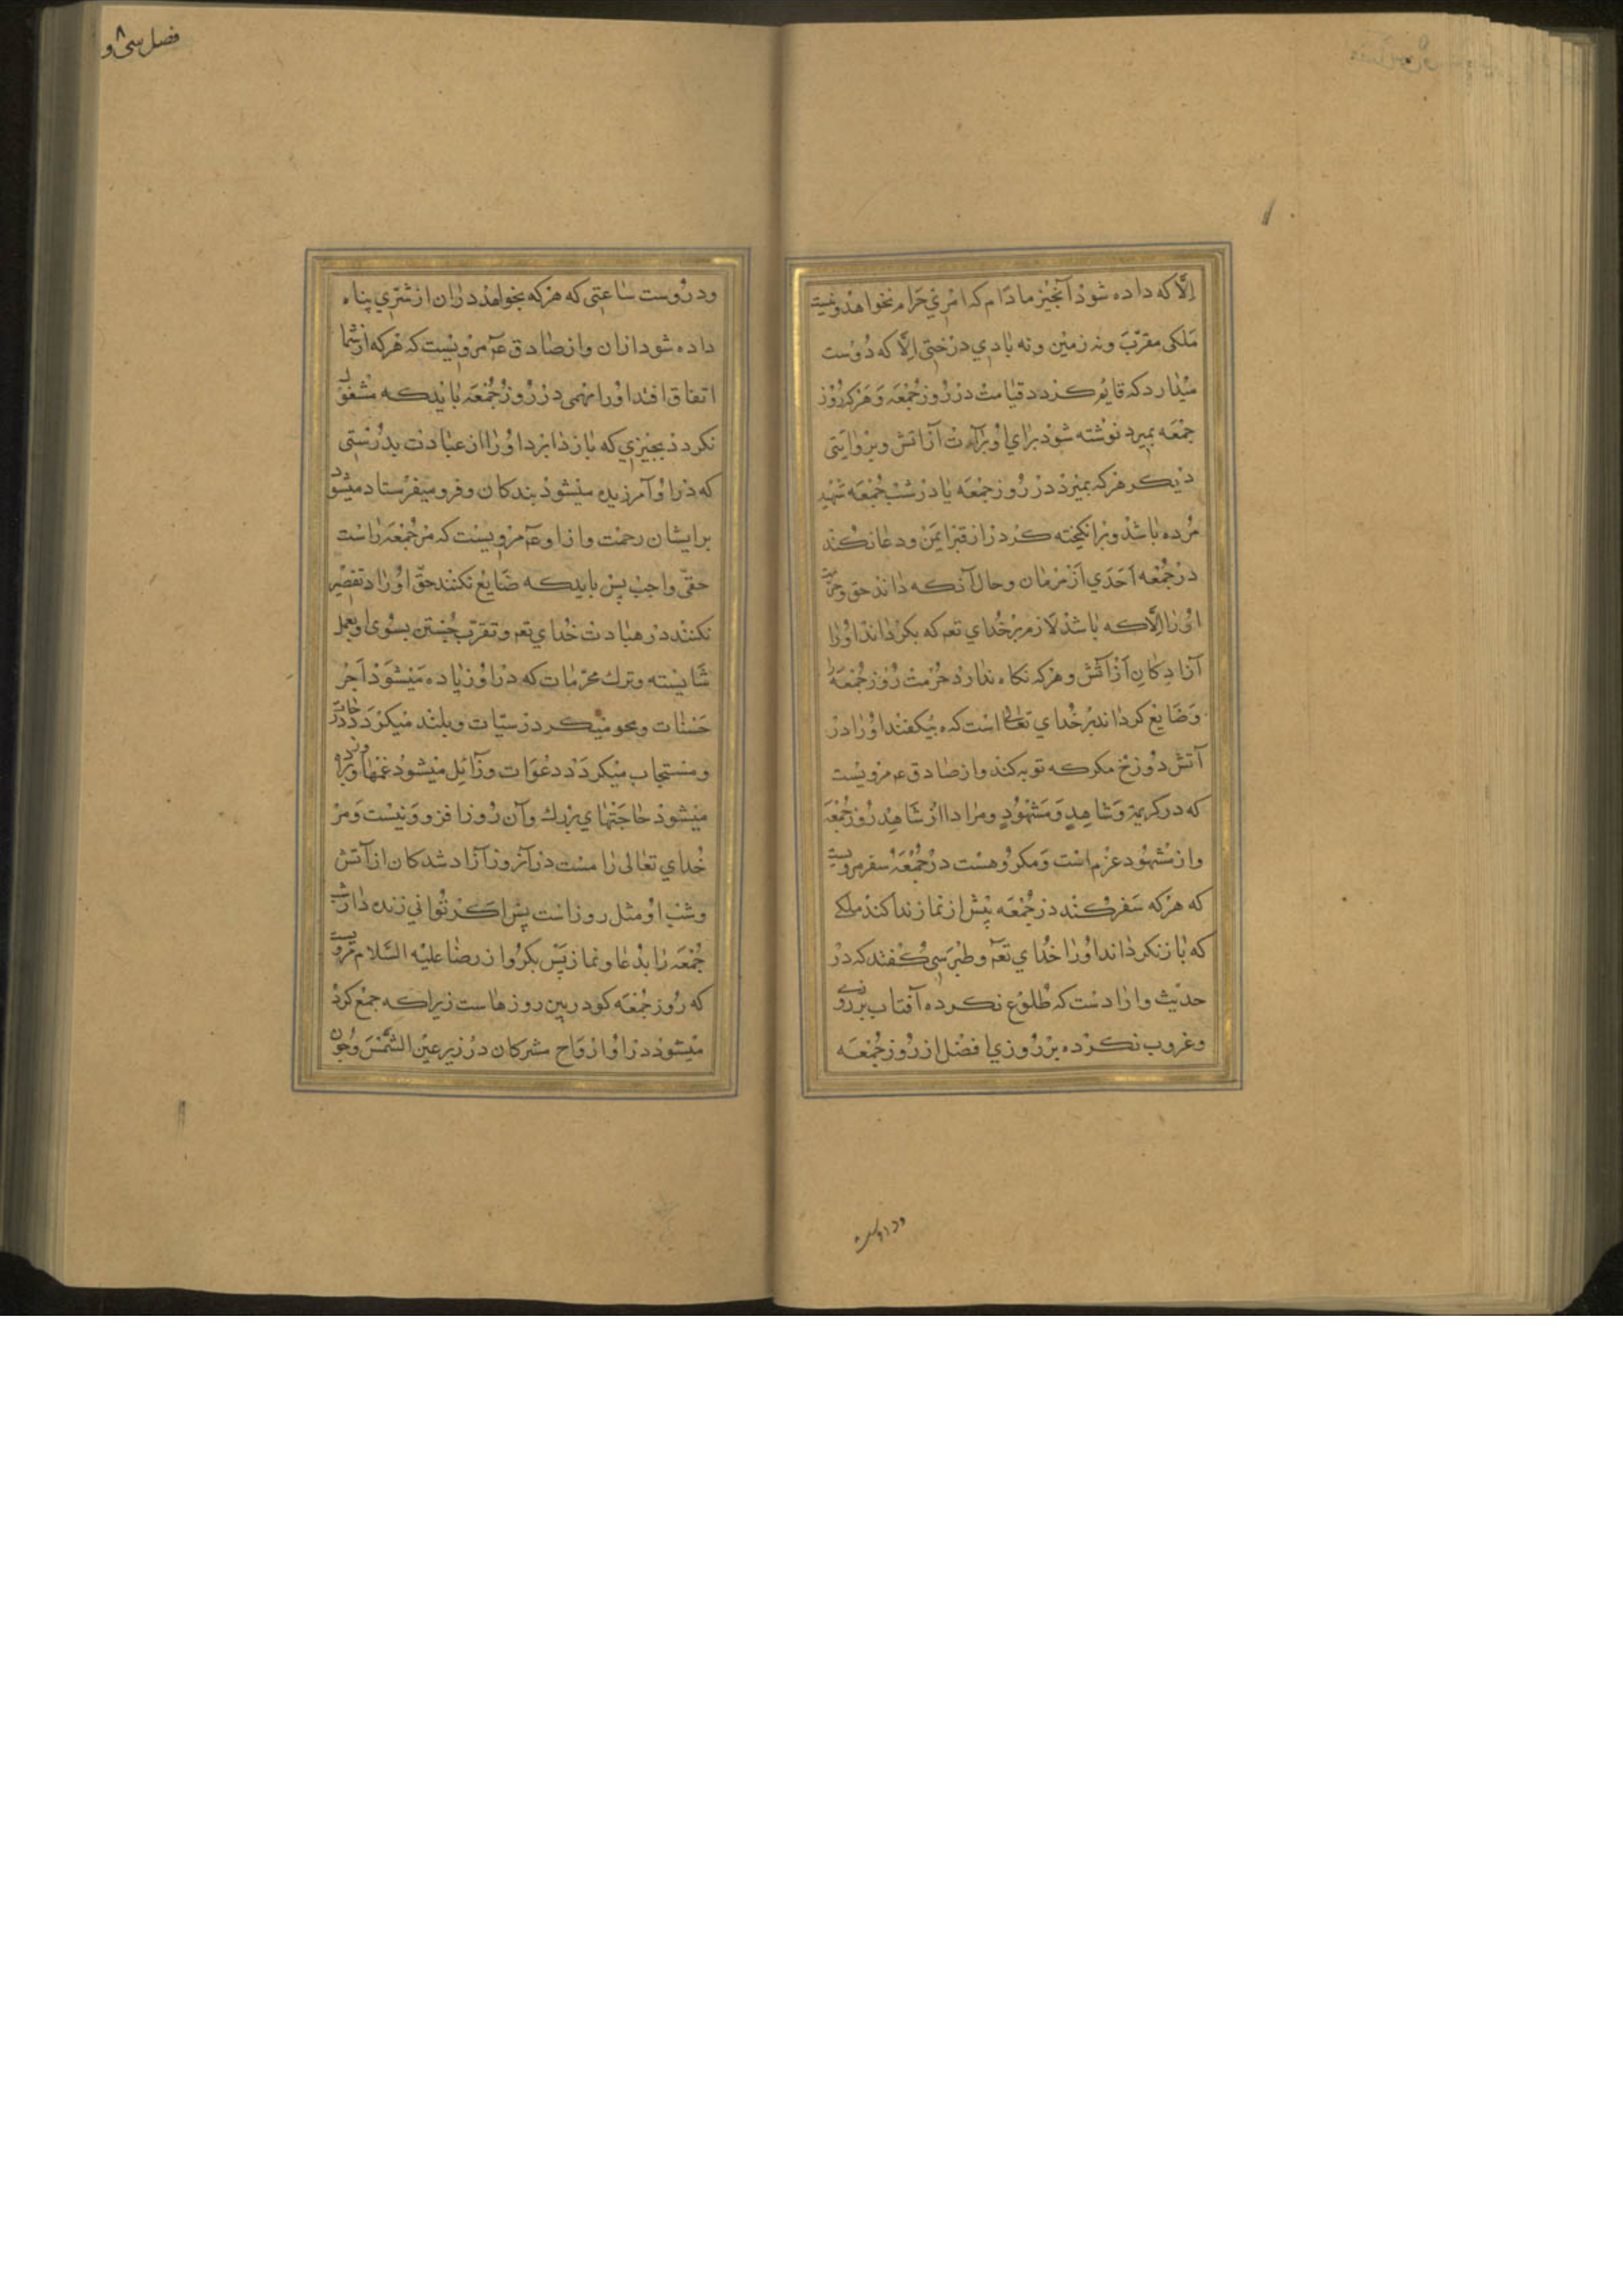 الّا که داده شود آنچیز مادام که امری حرام نخواهد و نیست
ملکی مقرّب و نه زمین و نه بادی درختی الّا که دوست
میدارد که قایم کردد قیامت در روز جمعه و هرکه روز
جمعه بمیرد نوشته شود برای او براءت از آتش و بروایتی
دیکر هرکه بمیرد در روز جمعه یا در شب جمعه شهید
مرده باشد و برانکیخته کردد از قبر ایمن و دعا نکند
در جمعه احدی از مزمان و حال آنکه داند حق و حرمت
او را الّا که باشد لازم بر خدای تعم که بکرداند او را
آزادکان از آتش و هرکه نکاه ندارد حرمت روز جمعه را
و ضایع کرداند بر خدای تعالی است که بیکفند او را در
آتش دوزخ مکر که توبه کند و از صادق عم مرویست
که در کریمۀ وَشَاهِدٍ وَمَشْهُودٍ و مراد از شاهد روز جمعه
و از مشهود عزم است و مکروهست در جمعه سفر مرویست
که هرکه سفر کند در جمعه پیش از نماز ندا کند ملکی
که باز نکرداند او را خدای تعم و طبرسی کفتند که در
حدیث وارادست که طلوع نکرده آفتاب بر روزی
و غروب نکرده بر روزی افضل از روز جمعه
ودروست
فصل سی و۸
ودروست ساعتی که هرکه بخواهد در ان از شرّی پناه
داده شود از ان و از صادق عم مرویست که هرکه از شما
اتفاق افتد او را مهمی در روز جمعه باید که مشغول
نکردد بجیزی که باز دارد او را از عبادت بدرستی
که در او آمرزیده میشود بندکان و فرومیفرستاد میشود
برایشان رحمت و از او عم مرویست که مر جمعه راست
حقّی واجب پس باید که ضایع نکنند حقّ او را و تقصیر
نکنند در عبادت خدای تعم و تقرّب جستن بسوی او بعمل
شایسته و ترک محرّمات که در او زیاده میشود اجر
حسنات و محو میکردد سیّات و بلند میکردد درجات
و مستجاب میکردد دعوات و زایل میشود غمها و برآورده
میشود حاجتهای بزرک و آن روز افزونیست و مر
خدای تعالی را مست در آنروز آزاد شدکان از آتش
و شب او مثل روز است پس اکر توانی زنده دار شب
جمعه را بدعا و نماز پس بکر و از رضا علیه السّلام مرویست
که روز جمعه کودربین روزهاست زیرا که جمع کرده
میشود در او ارواح مشرکان در زیر عین الشّمس و چون